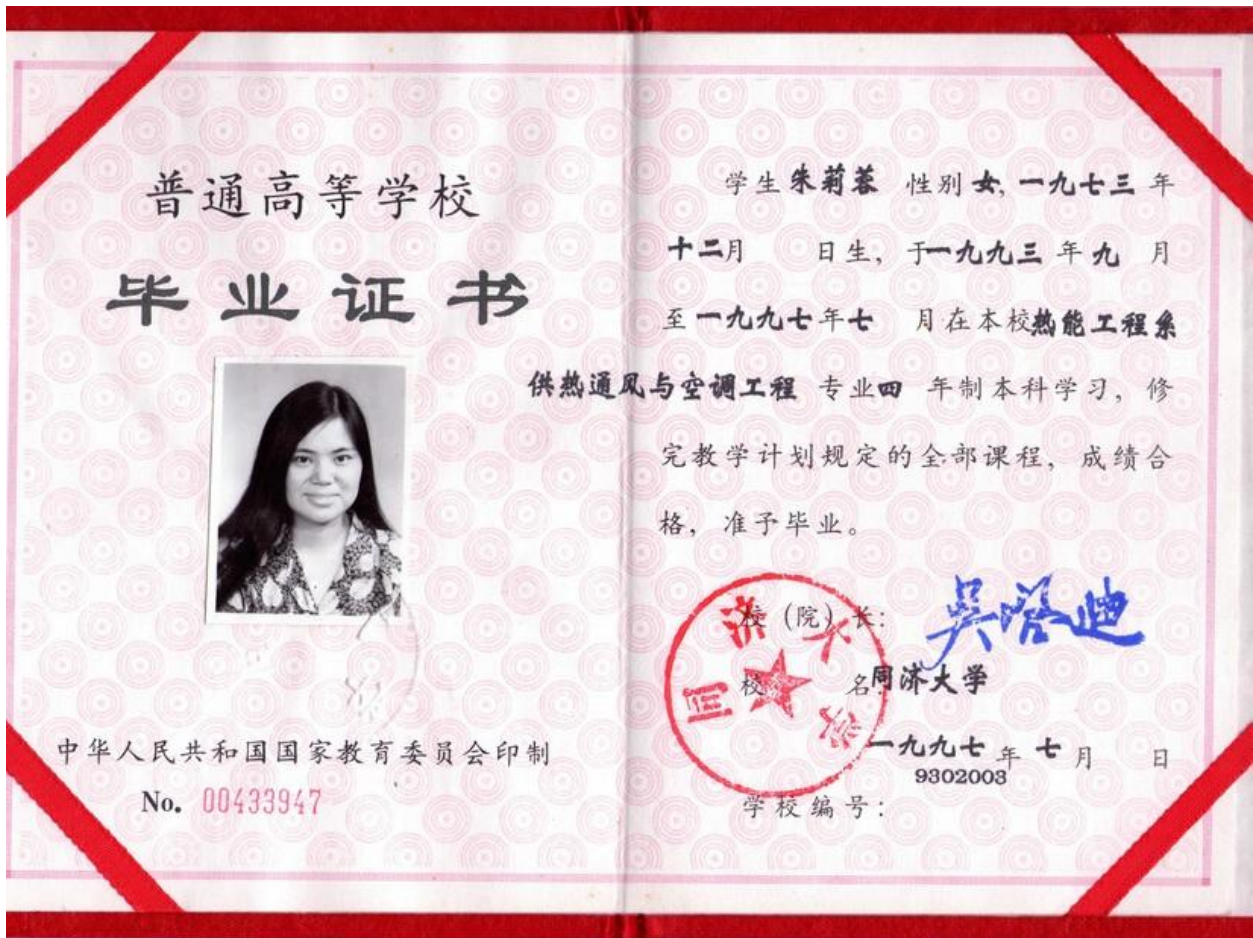 普通高等学校
毕业证书
中华人民共和国国家教育委员会印制
No. 00433947
学生朱莉蓉 性别女, 一九七三年
十二月 日生, 于一九九三年九 月
至一九九七年七 月在本校热能工程系
供热通风与空调工程 专业四 年制本科学习, 修
完教学计划规定的全部课程, 成绩合
格, 准予毕业。
校(院)长: 吴启迪
校 名: 同济大学
同济大学
一九九七年七月 日
9302003
学校编号: